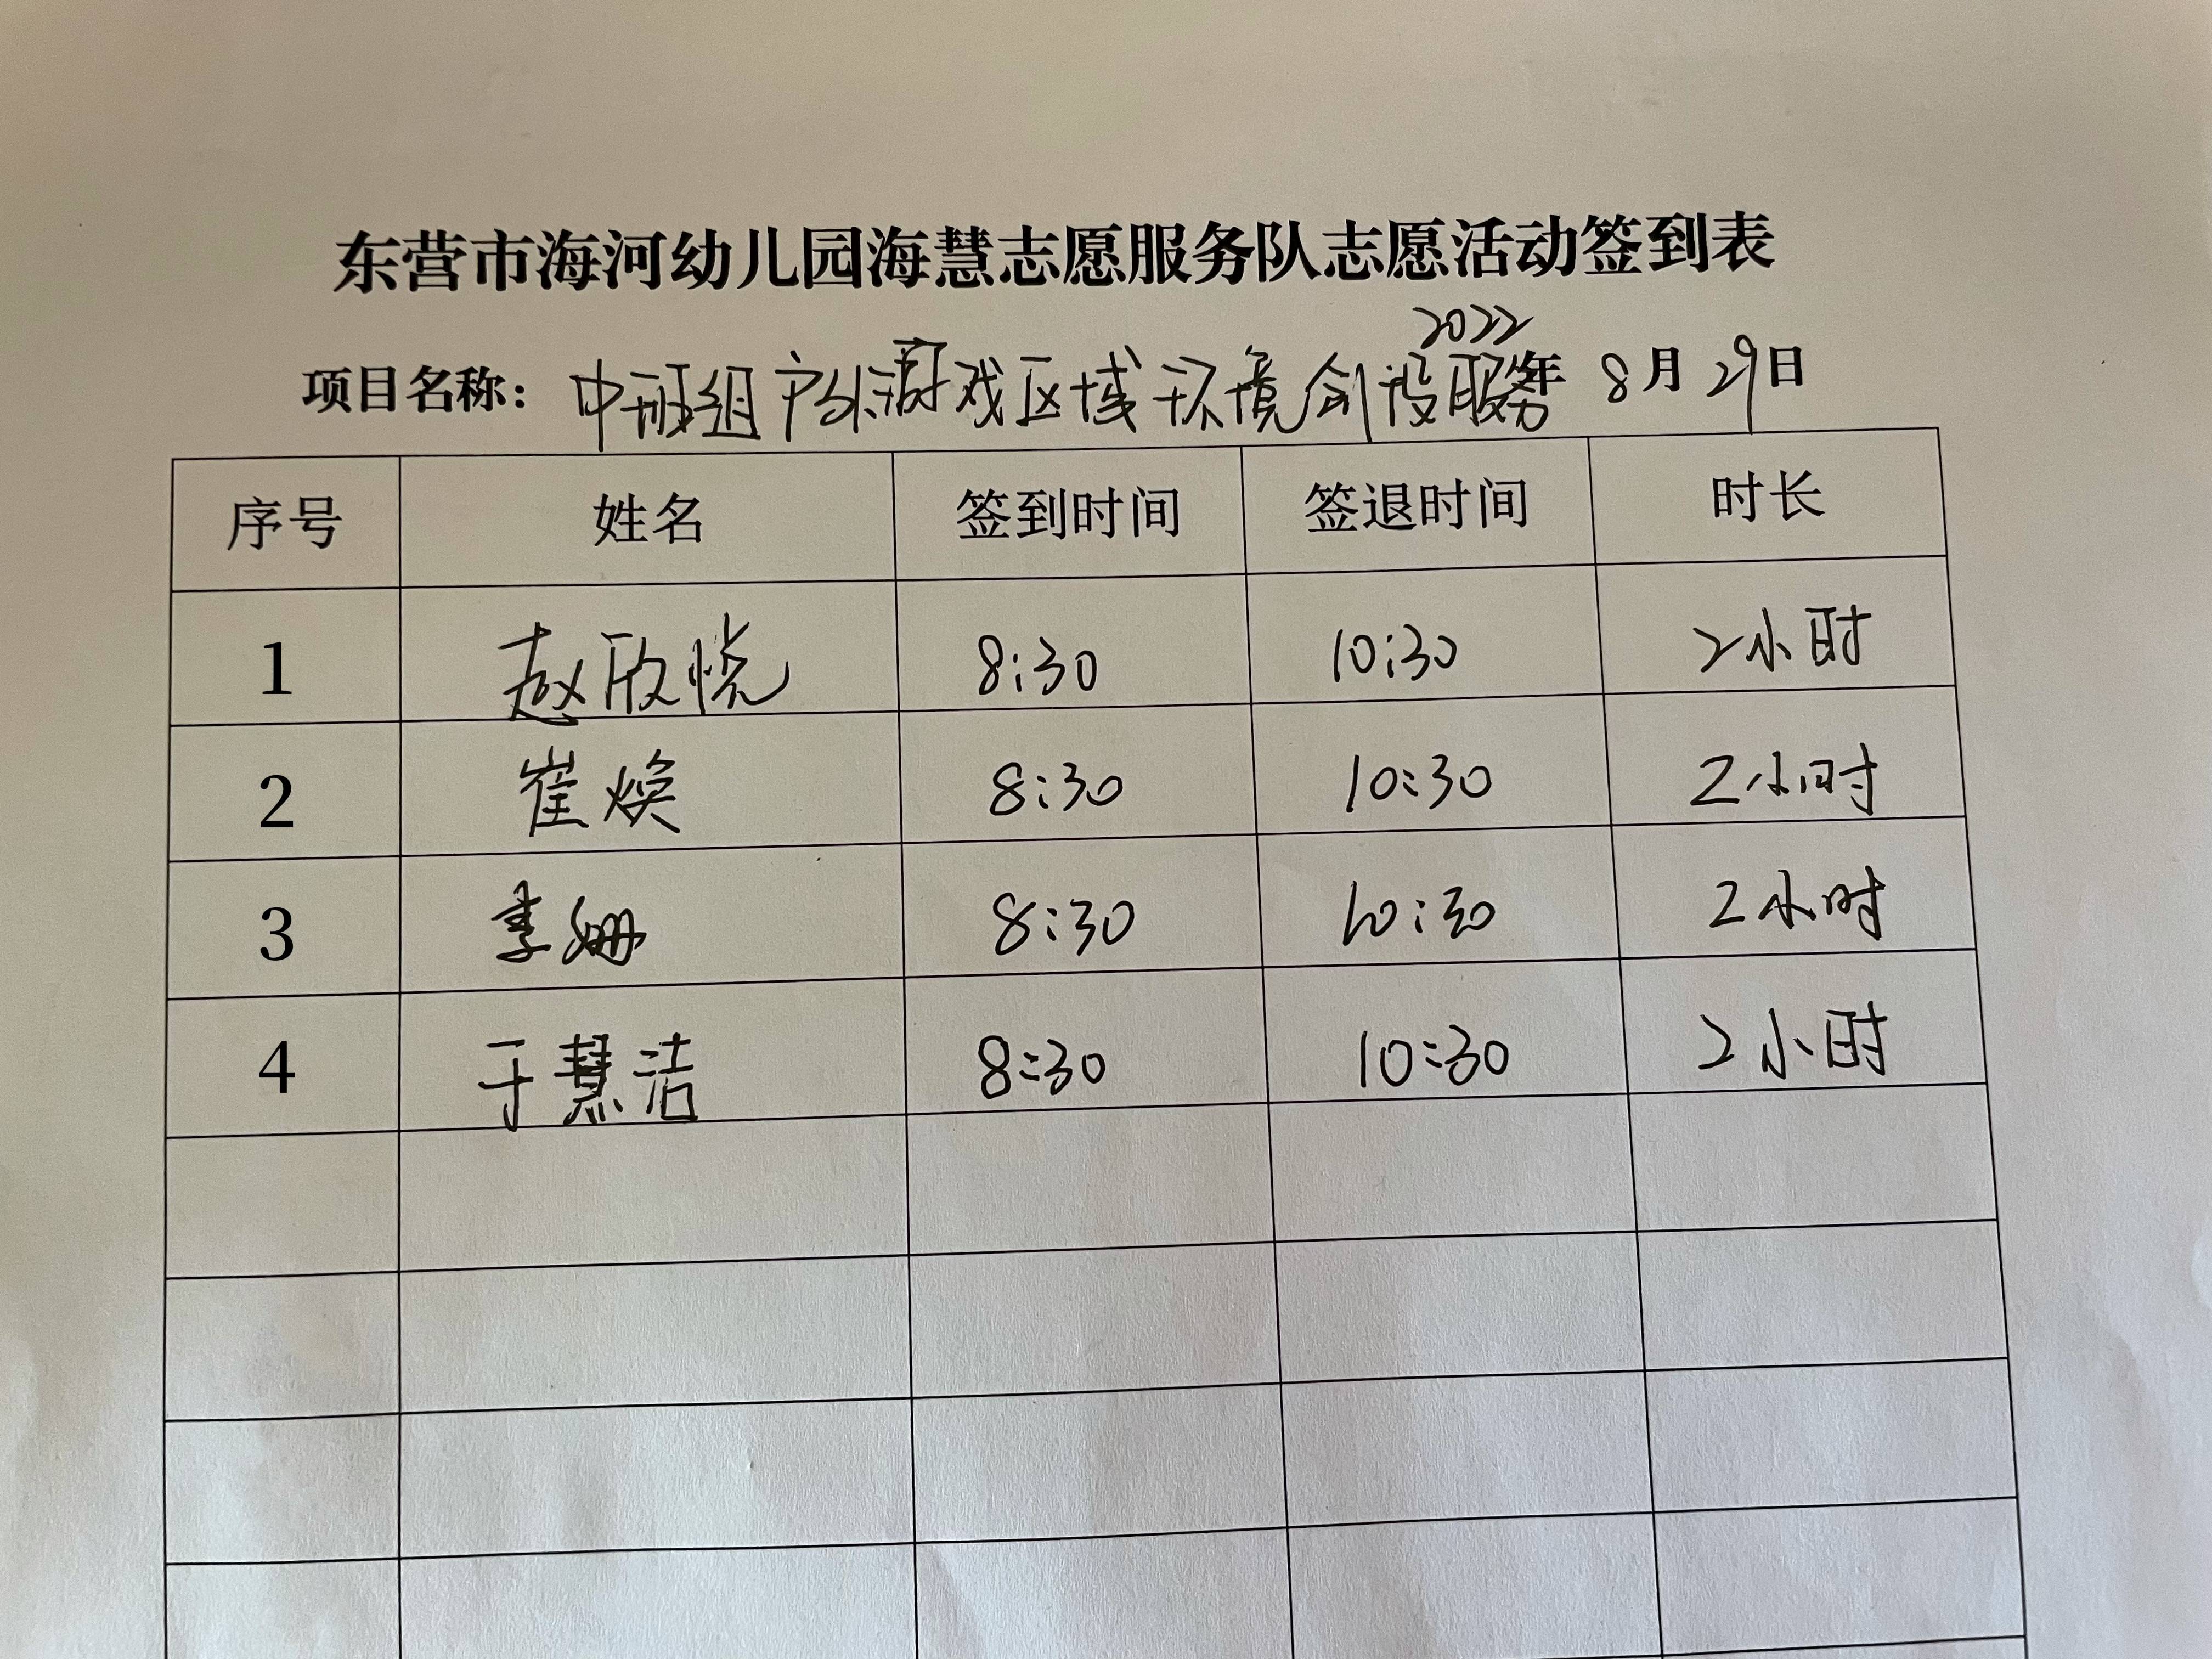 东营市海河幼儿园海慧志愿服务队志愿活动签到表
项目名称：中班组户外游戏区域环境创设服务 2022年 8月29日
序号 姓名 签到时间 签退时间 时长
1 赵欣悦 8:30 10:30 2小时
2 崔焕 8:30 10:30 2小时
3 李姗 8:30 10:30 2小时
4 于慧洁 8:30 10:30 2小时